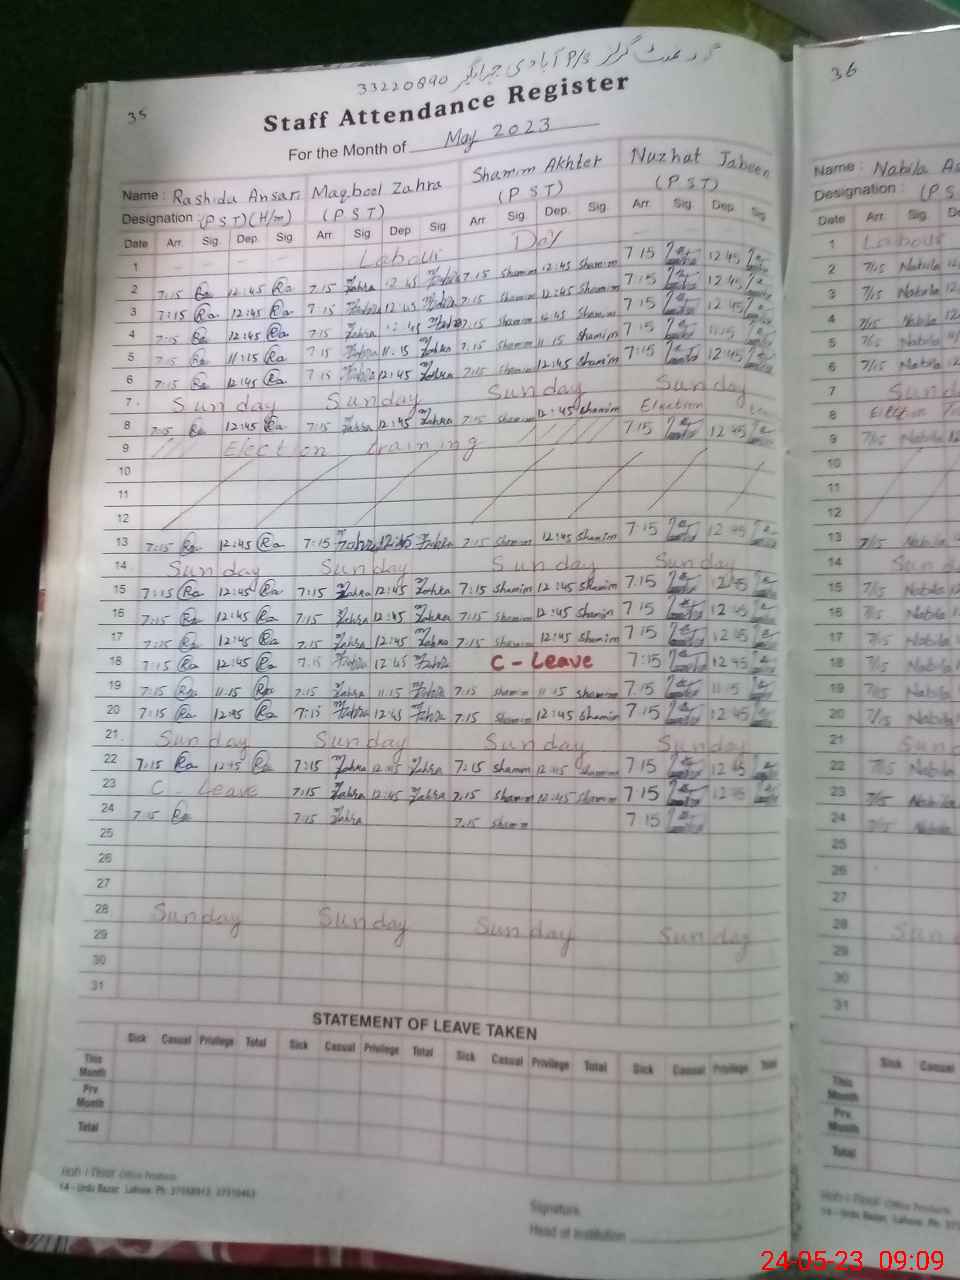 35
گورنمنٹ گرلز P/S آبادی جہانگیر 33220890
Staff Attendance Register
For the Month of May 2023
Name : Rashida Ansari Maqbool Zahra Shamim Akhter Nuzhat Jabeen
Designation : (PST)(H/m) (PST) (PST) (PST)
Date Arr. Sig. Dep. Sig. Arr. Sig. Dep. Sig. Arr. Sig. Dep. Sig. Arr. Sig. Dep. Sig.
1 Labour Day 7 15 12 45
2 7:15 Ra 12:45 Ra 7.15 Zahra 12 45 Zahra 7.15 Shamim 12:45 Shamim 7 15 12 45
3 7:15 Ra 12:45 Ra 7:15 Zahra 12:45 Zahra 7:15 Shamim 12:45 Shamim 7 15 12 45
4 7:15 Ra 12:45 Ra 7:15 Zahra 12:45 Zahra 7:15 Shamim 12:45 Shamim 7 15 11:15
5 7:15 Ra 11:15 Ra 7 15 Zahra 11.15 Zahra 7.15 Shamim 11 15 Shamim 7:15 12:45
6 7:15 Ra 12:45 Ra 7.15 Zahra 12:45 Zahra 7:15 Shamim 12:45 Shamim
7 Sunday Sunday Sunday Sunday
8 7:15 Ra 12:45 Ra 7:15 Zahra 12:45 Zahra 7:15 Shamim 12:45 Shamim Election
9 Election training 7 15 12 45
10
11
12
13 7:15 Ra 12:45 Ra 7:15 Zahra 12:45 Zahra 7:15 Shamim 12:45 Shamim 7:15 12 45
14 Sunday Sunday Sunday Sunday
15 7:15 Ra 12:45 Ra 7:15 Zahra 12:45 Zahra 7:15 Shamim 12:45 Shamim 7.15 12 45
16 7:15 Ra 12:45 Ra 7:15 Zahra 12:45 Zahra 7:15 Shamim 12:45 Shamim 7 15 12 45
17 7:15 Ra 12:45 Ra 7.15 Zahra 12:45 Zahra 7:15 Shamim 12:45 Shamim 7 15 12 45
18 7:15 Ra 12:45 Ra 7:15 Zahra 12 45 Zahra C - Leave 7:15 12 45
19 7:15 Ra 11:15 Ra 7:15 Zahra 11.15 Zahra 7:15 Shamim 11 15 Shamim 7.15 11 15
20 7:15 Ra 12:45 Ra 7:15 Zahra 12:45 Zahra 7:15 Shamim 12:45 Shamim 7.15 12 45
21 Sunday Sunday Sunday Sunday
22 7:15 Ra 12:45 Ra 7:15 Zahra 12:45 Zahra 7:15 Shamim 12:45 Shamim 7 15 12 45
23 C - Leave 7:15 Zahra 12:45 Zahra 7.15 Shamim 12:45 Shamim 7 15 12 45
24 7:15 Ra 7:15 Zahra 7.15 Shamim 7 15
25
26
27
28 Sunday Sunday Sunday Sunday
29
30
31
STATEMENT OF LEAVE TAKEN
Sick Casual Privilege Total Sick Casual Privilege Total Sick Casual Privilege Total Sick Casual Privilege Total
This Month
Prv. Month
Total
Office Products
14 - Urdu Bazar, Lahore. Ph:
Signature
Head of Institution
36
Name : Nabila
Designation : (PS
Date Arr. Sig. Dep
1 Labour
2 7/15 Nabila
3 7/15 Nabila
4 7/15 Nabila
5 7/15 Nabila
6 7/15 Nabila
7 Sund
8 Election
9 7/15 Nabila
10
11
12
13 7/15 Nabila
14 Sund
15 7/15 Nabila
16 7/15 Nabila
17 7/15 Nabila
18 7/15 Nabila
19 7/15 Nabila
20 7/15 Nabila
21 Sund
22 7/15 Nabila
23 7/15 Nabila
24 7/15 Nabila
25
26
27
28 Sund
29
30
31
Sick Casual
This Month
Prv. Month
Total
Office Products
14 - Urdu Bazar, Lahore. Ph:
24-05-23 09:09